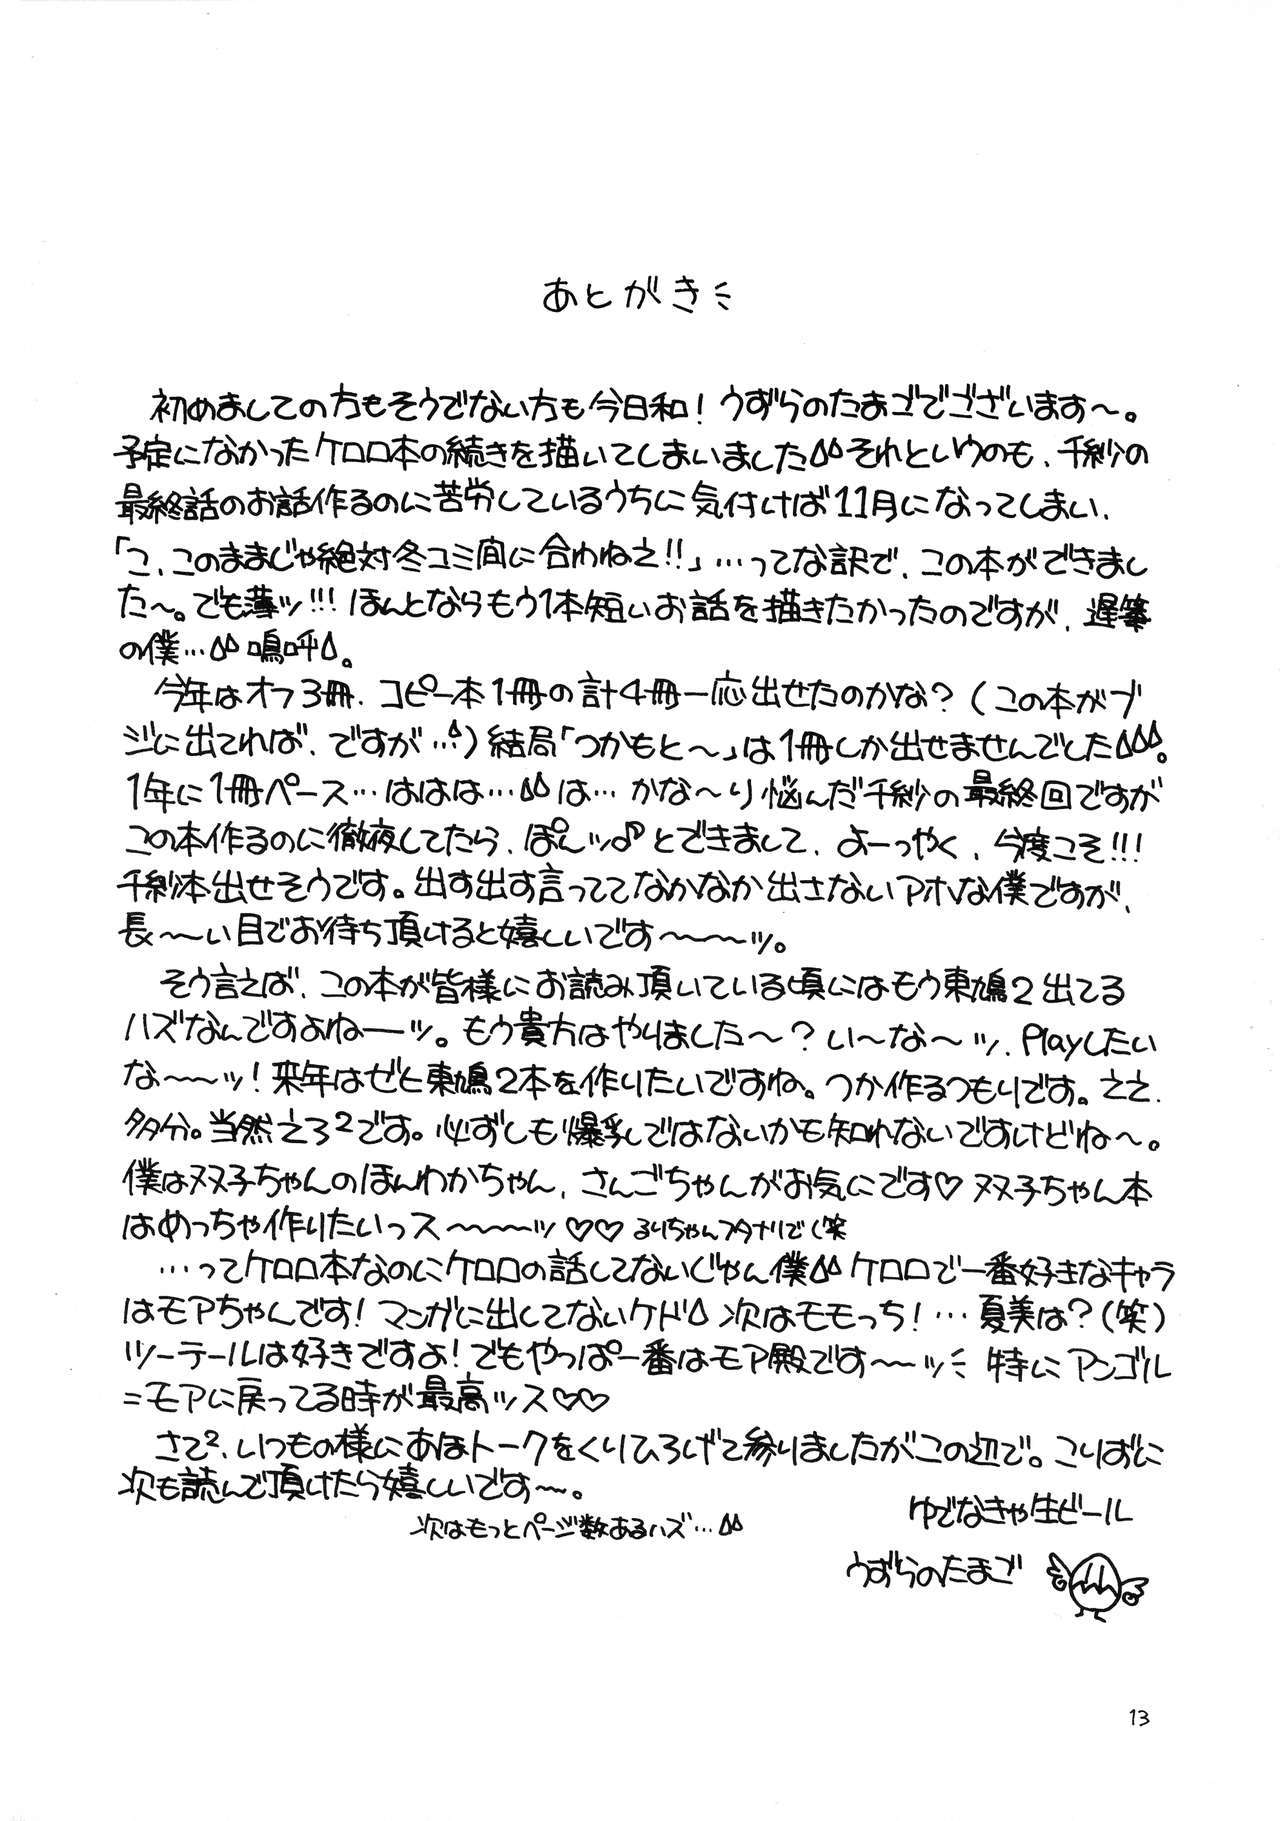 あとがき
初めましての方もそうでない方も今日和！うずらのたまごでございます〜。
予定になかったケロロ本の続きを描いてしまいました それというのも、千紗の
最終話のお話作るのに苦労しているうちに気付けば11月になってしまい、
「こ、このままじゃ絶対冬コミ間に合わねえ!!」…ってな訳で、この本ができまし
た〜。でも薄ッ!!! ほんとならもう1本短いお話を描きたかったのですが、遅筆
の僕… 嗚呼。
今年はオフ3冊、コピー本1冊の計4冊一応出せたのかな？（この本がブ
ジに出てれば、ですが…）結局「つかもと〜」は1冊しか出せませんでした。
1年に1冊ペース…ははは… は… かな〜り悩んだ千紗の最終回ですが
この本作るのに徹夜してたら、ぽんッ♪とできまして、よーっやく、今度こそ!!!
千紗本出せそうです。出す出す言っててなかなか出さないアホな僕ですが、
長〜〜い目でお待ち頂けると嬉しいです〜〜〜ッ。
そう言えば、この本が皆様にお読み頂いている頃にはもう東鳩2出てる
ハズなんですよねーーッ。もう貴方はやりました〜？い〜な〜ッ、Playしたい
な〜〜ッ！来年はぜひ東鳩2本を作りたいですね。つか作るつもりです。ええ、
多分。当然えろ²です。必ずしも爆乳ではないかも知れないですけどね〜。
僕は双子ちゃんのほんわかちゃん、さんごちゃんがお気にです♡ 双子ちゃん本
はめっちゃ作りたいっス〜〜〜ッ♡♡ るりちゃんフタナリで（笑
…ってケロロ本なのにケロロの話してないじゃん僕 ケロロで一番好きなキャラ
はモアちゃんです！マンガに出してないケド 次はモモっち！…夏美は？（笑）
ツーテールは好きですよ！でもやっぱ一番はモア殿です〜〜ッ 特にアンゴル
=モアに戻ってる時が最高ッス♡♡
さて²、いつもの様にあほトークをくりひろげて参りましたがこの辺で。こりずに
次も読んで頂けたら嬉しいです〜。
次はもっとページ数あるハズ…
ゆでなきゃ生ビール
うずらのたまご
13